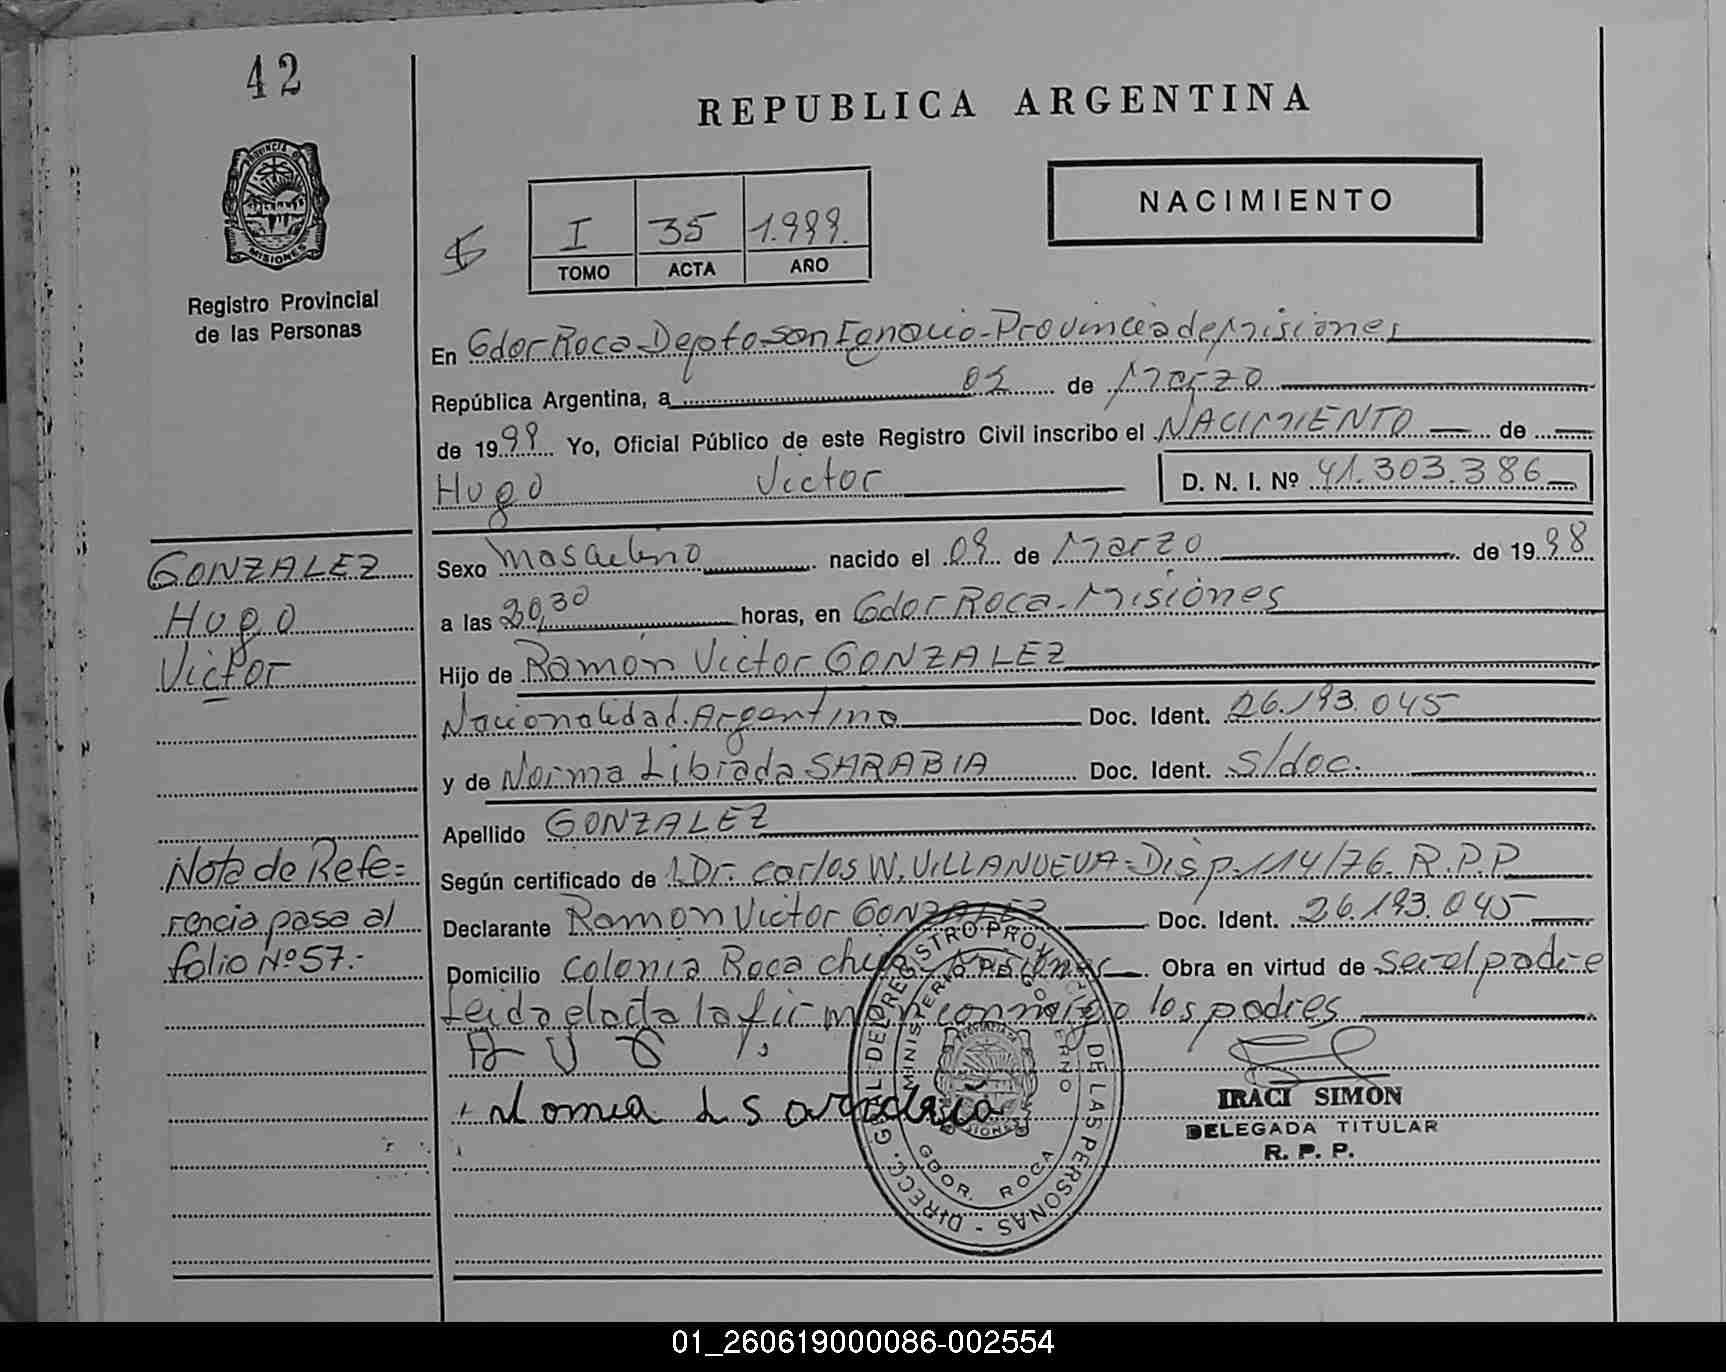 42
REPUBLICA ARGENTINA
NACIMIENTO
I 35 1.999.
TOMO ACTA AÑO
PROVINCIA D MISIONES
Registro Provincial
de las Personas
En Gdor Roca Depto San Ignacio - Provincia de Misiones
República Argentina, a 02 de Marzo
de 1999 Yo, Oficial Público de este Registro Civil inscribo el NACIMIENTO de
Hugo Victor D. N. I. Nº 41.303.386
GONZALEZ
Hugo
Victor
Sexo Masculino nacido el 09 de Marzo de 1998
a las 20,30 horas, en Gdor Roca - Misiones
Hijo de Ramón Victor GONZALEZ
Nacionalidad Argentina Doc. Ident. 26.193.045
y de Norma Librada SARABIA Doc. Ident. s/doc.
Apellido GONZALEZ
Nota de Refe=
rencia pasa al
folio Nº 57.-
Según certificado de Dr. Carlos W. VILLANUEVA - Disp. 114/76. R.P.P
Declarante Ramón Victor GONZALEZ Doc. Ident. 26.193.045
Domicilio Colonia Roca Misiones Obra en virtud de ser el padre
Leida el acta la firman conmigo los padres
IRACI SIMON
DELEGADA TITULAR
R. P. P.
DIRECC. GRAL. DEL REGISTRO PROVINCIAL DE LAS PERSONAS -
MINISTERIO DE GOBIERNO
GDOR. ROCA
01_260619000086-002554